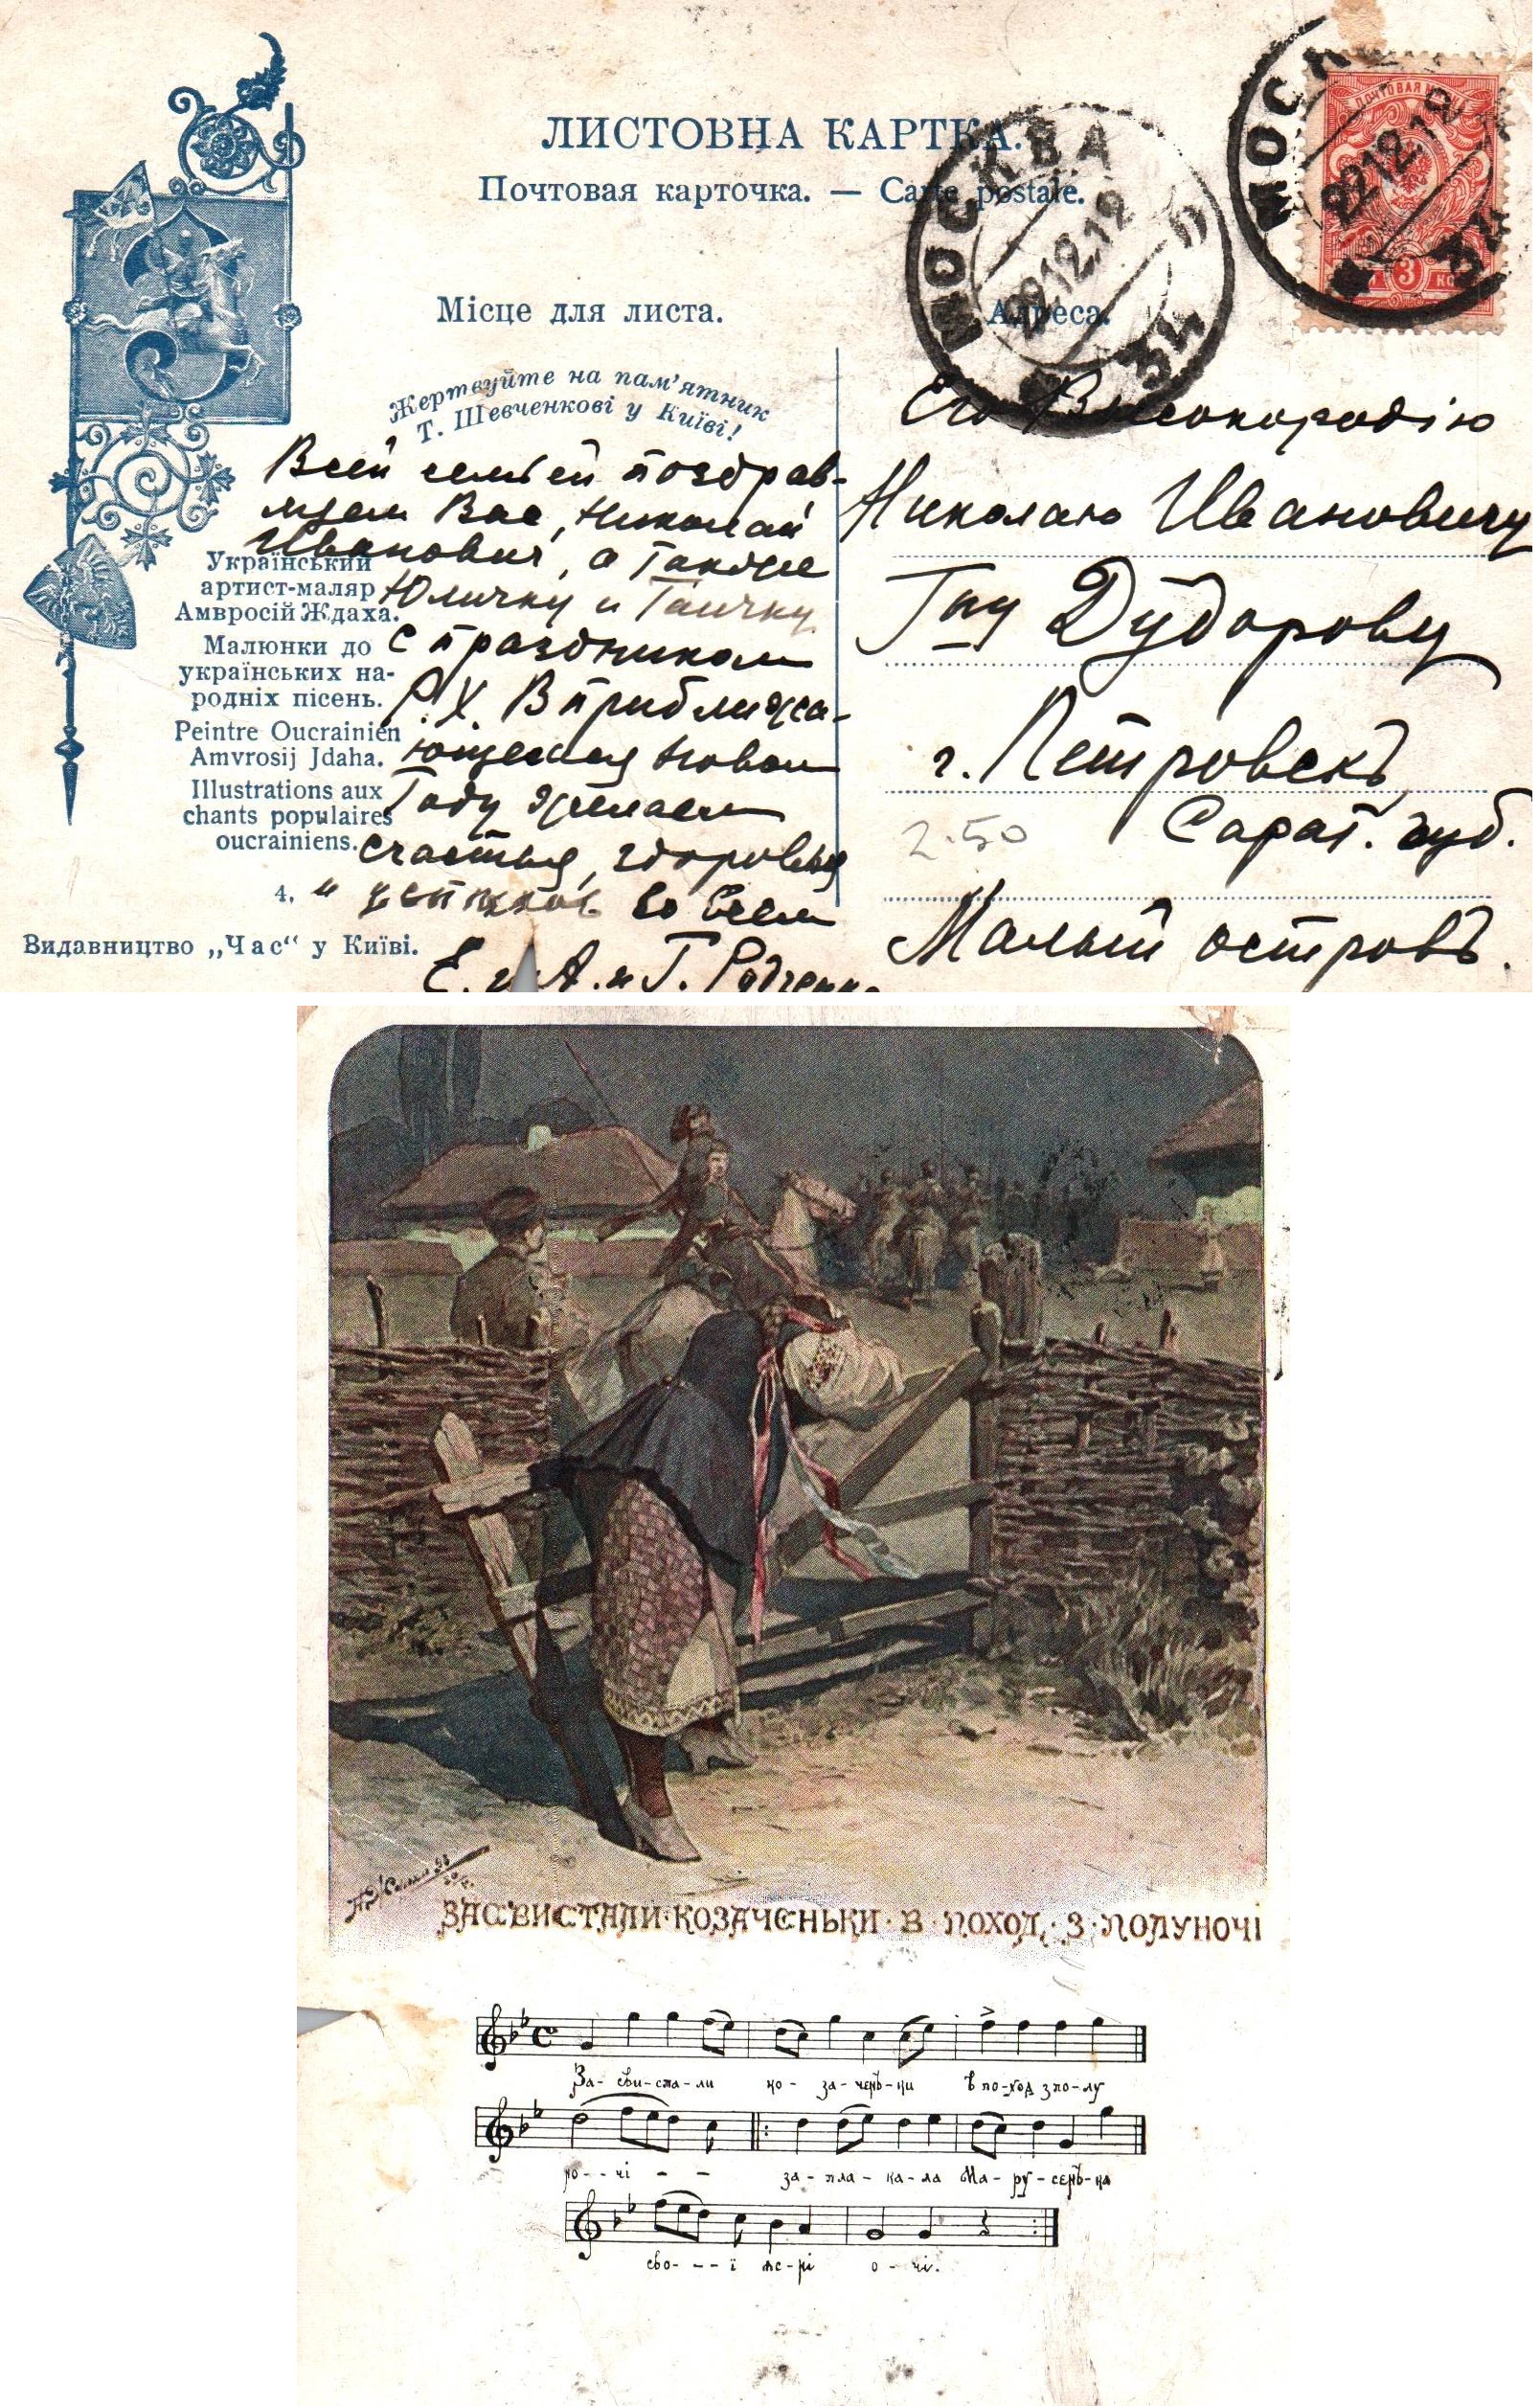 ЛИСТОВНА КАРТКА.
Почтовая карточка. — Carte postale.
МОСКВА
22 12 12
34
МОСК
22 12 12
34
ПОЧТОВАЯ
3
Місце для листа.
Адреса.
Жертвуйте на пам'ятник
Т. Шевченкові у Київі!
Всей семьей поздрав-
ляем Вас, Николай
Иванович, а также
Юличку и Таичку
с праздником
Р. Х. В приближа-
ющемся Новом
Году желаем
счастья, здоровья
и успехов во всем
Е. и А. и Г.
Український
артист-маляр
Амвросій Ждаха.
Малюнки до
українських на-
родніх пісень.
Peintre Oucrainien
Amvrosij Jdaha.
Illustrations aux
chants populaires
oucrainiens.
4.
Видавництво „Час“ у Київі.
Его Высокородію
Николаю Ивановичу
Гну Дудорову
г. Петровскъ
2.50
Сарат. губ.
Малый островъ.
ЗАСВИСТАЛИ·КОЗАЧЕНЬКИ·В·ПОХОД·З·ПОЛУНОЧІ
За-сви-ста-ли ко-за-чень-ки в по-ход з по-лу
но--чі - - за-пла-ка-ла Ма-ру-сень-ка
сво---ї яс-ні о-чі.